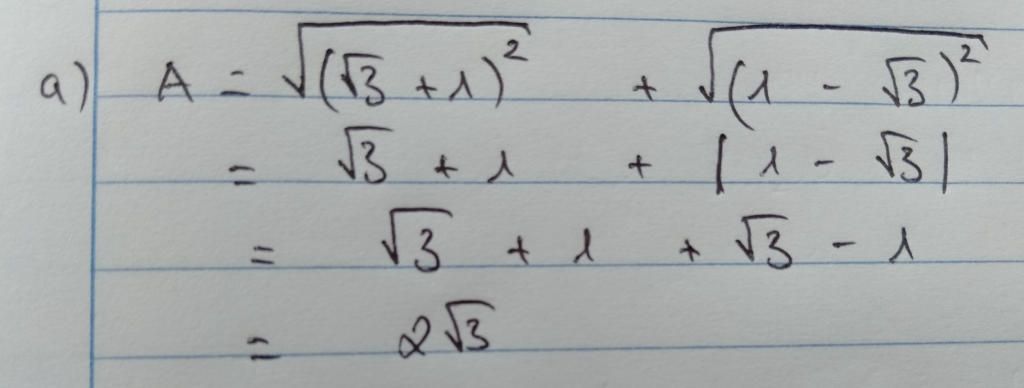 a) A = √(√3 + 1)² + √(1 - √3)²
= √3 + 1 + |1 - √3|
= √3 + 1 + √3 - 1
= 2√3